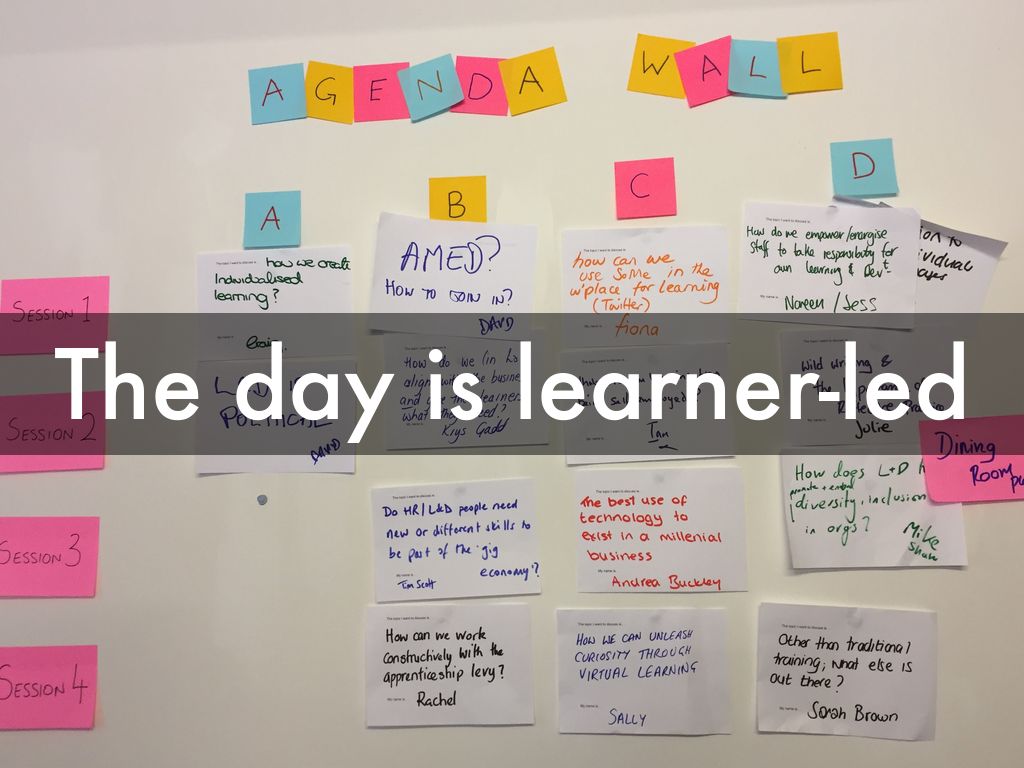 AGENDA WALL
A
B
C
D
SESSION 1
The topic I want to discuss is
how we create
Individualised
learning?
AMED?
HOW TO JOIN IN?
DAVID
The topic I want to discuss is
how can we
use SoMe in the
w'place for learning
(Twitter)
My name is
fiona
The topic I want to discuss is
How do we empower/energise
staff to take responsibility for
own learning & Devt.
My name is
Noreen / Jess
The day is learner-led
SESSION 2
POLITICAL
DAVID
The topic I want to discuss is
How do we (in L&
align with the busine
and give the learners
what they need?
My name is
Krys Gadd
Ian
Wild writing &
Julie
Dining
Room
SESSION 3
Do HR/L&D people need
new or different skills to
be part of the 'gig
economy'?
My name is
Tim Scott
The topic I want to discuss is
The best use of
technology to
exist in a millenial
business
My name is
Andrea Buckley
How does L+D
promote + embed
diversity, inclusion
in orgs?
Mike
Shaw
SESSION 4
The topic I want to discuss is
How can we work
constructively with the
apprenticeship levy?
My name is
Rachel
The topic I want to discuss is
HOW WE CAN UNLEASH
CURIOSITY THROUGH
VIRTUAL LEARNING
My name is
SALLY
The topic I want to discuss is
Other than traditional
training; what else is
out there?
My name is
Sarah Brown